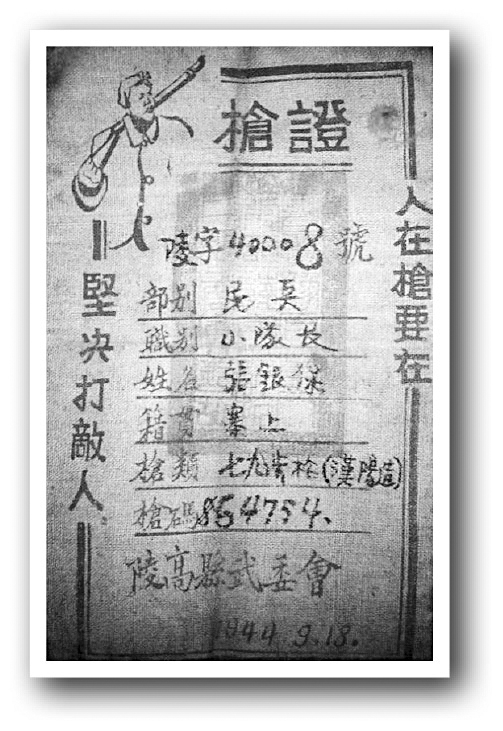 槍證
人在槍要在
堅决打敵人
陵字40008號
部别 民兵
職别 小隊長
姓名 張銀保
籍貫 寨上
槍類 七九步枪(漢陽造)
槍碼 864754.
陵高縣武委會
1944.9.18.